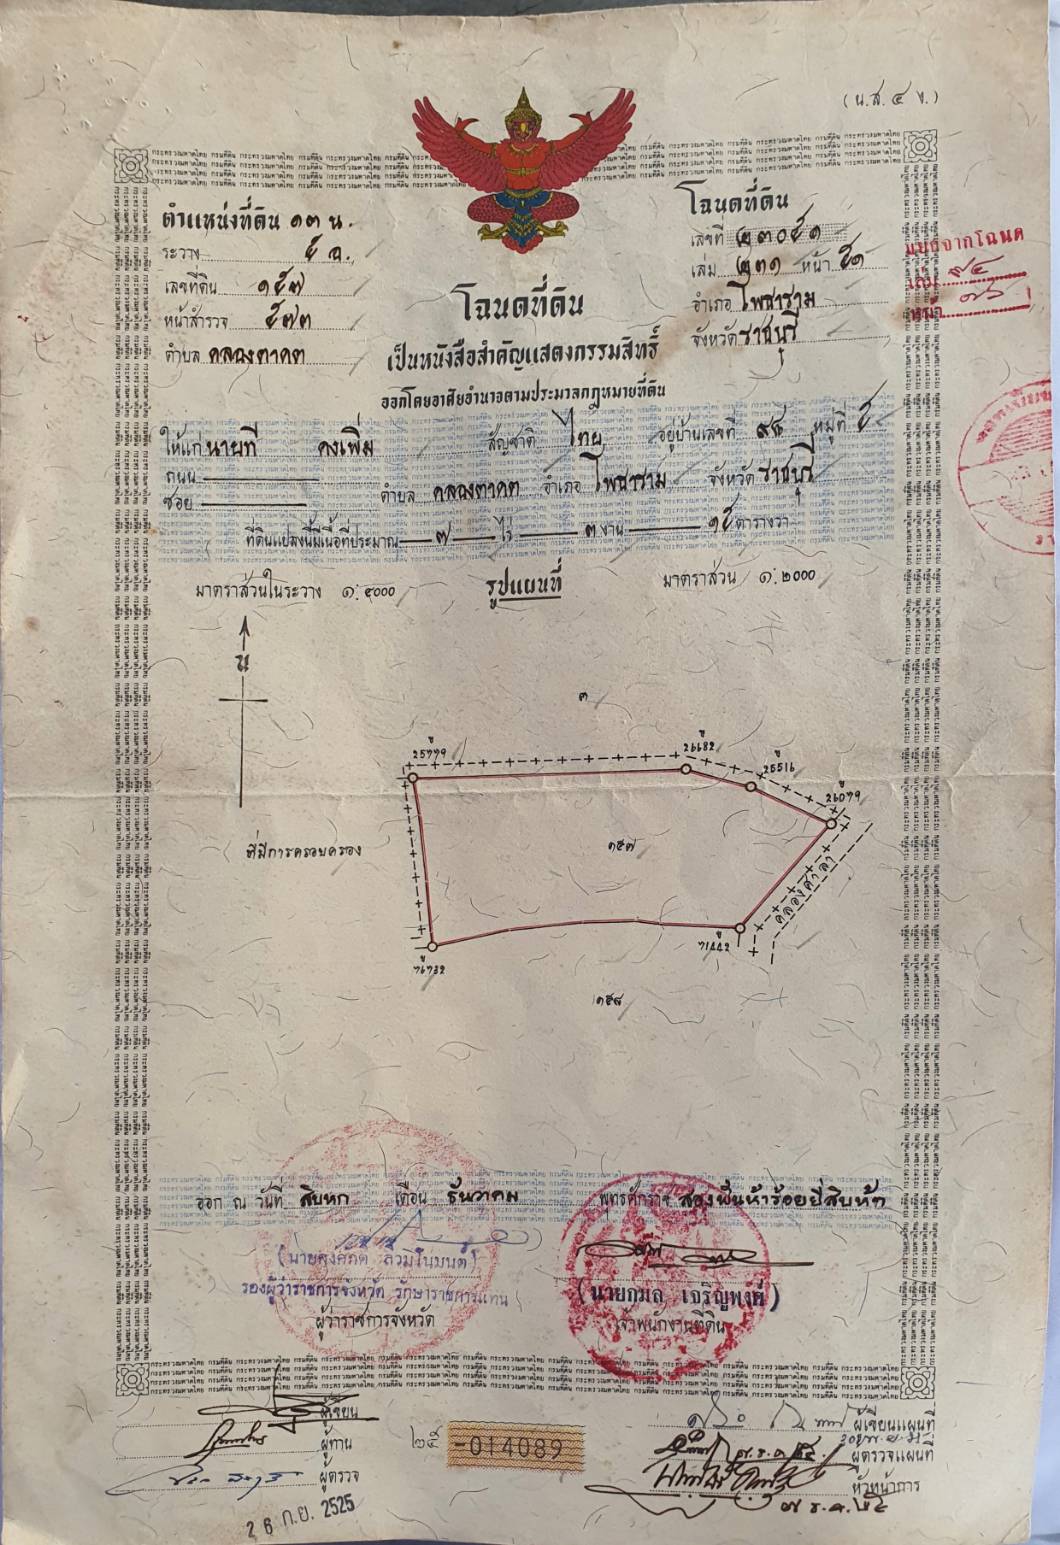 (น.ส. ๔ ข.)
ตำแหน่งที่ดิน ๑๓ น.
ระวาง ๕ ฉ.
เลขที่ดิน ๑๕๗
หน้าสำรวจ ๕๗๓
ตำบล คลองตาคต
โฉนดที่ดิน
เลขที่ ๒๓๐๕๑
เล่ม ๒๓๑ หน้า ๕๑
อำเภอ โพธาราม
จังหวัด ราชบุรี
แบ่งจากโฉนด
เล่ม
หน้า
โฉนดที่ดิน
เป็นหนังสือสำคัญแสดงกรรมสิทธิ์
ออกโดยอาศัยอำนาจตามประมวลกฎหมายที่ดิน
ให้แก่ นายที คงเพิ่ม สัญชาติ ไทย อยู่บ้านเลขที่ ๙๕ หมู่ที่ ๕
ถนน
ซอย ตำบล คลองตาคต อำเภอ โพธาราม จังหวัด ราชบุรี
ที่ดินแปลงนี้มีเนื้อที่ประมาณ ๗ ไร่ ๓ งาน ๑๕ ตารางวา
มาตราส่วนในระวาง ๑:๔๐๐๐ รูปแผนที่ มาตราส่วน ๑:๒๐๐๐
น
๓
25779
26682
25516
26079
ที่มีการครอบครอง
๑๕๗
คลองศาลา
76732
71442
๑๕๘
ออก ณ วันที่ สิบหก เดือน ธันวาคม พุทธศักราช สองพันห้าร้อยยี่สิบห้า
รองผู้ว่าราชการจังหวัด รักษาราชการแทน
ผู้ว่าราชการจังหวัด
(นายกมล เจริญพงศ์)
เจ้าพนักงานที่ดิน
ผู้เขียน
ผู้ทาน
ผู้ตรวจ
26 ก.ย. 2525
-014089
ผู้เขียนแผนที่
ผู้ตรวจแผนที่
หัวหน้าการ
๗ ธ.ค. ๒๕